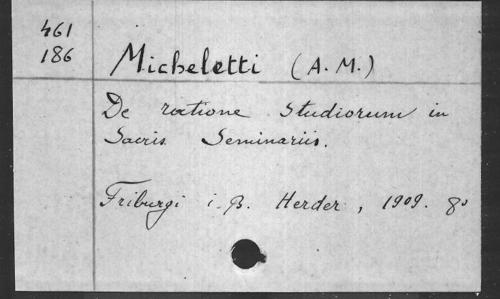 461
186
Micheletti (A. M.)
De ratione Studiorum in
Sacris Seminariis.
Friburgi i. B. Herder, 1909. 8°